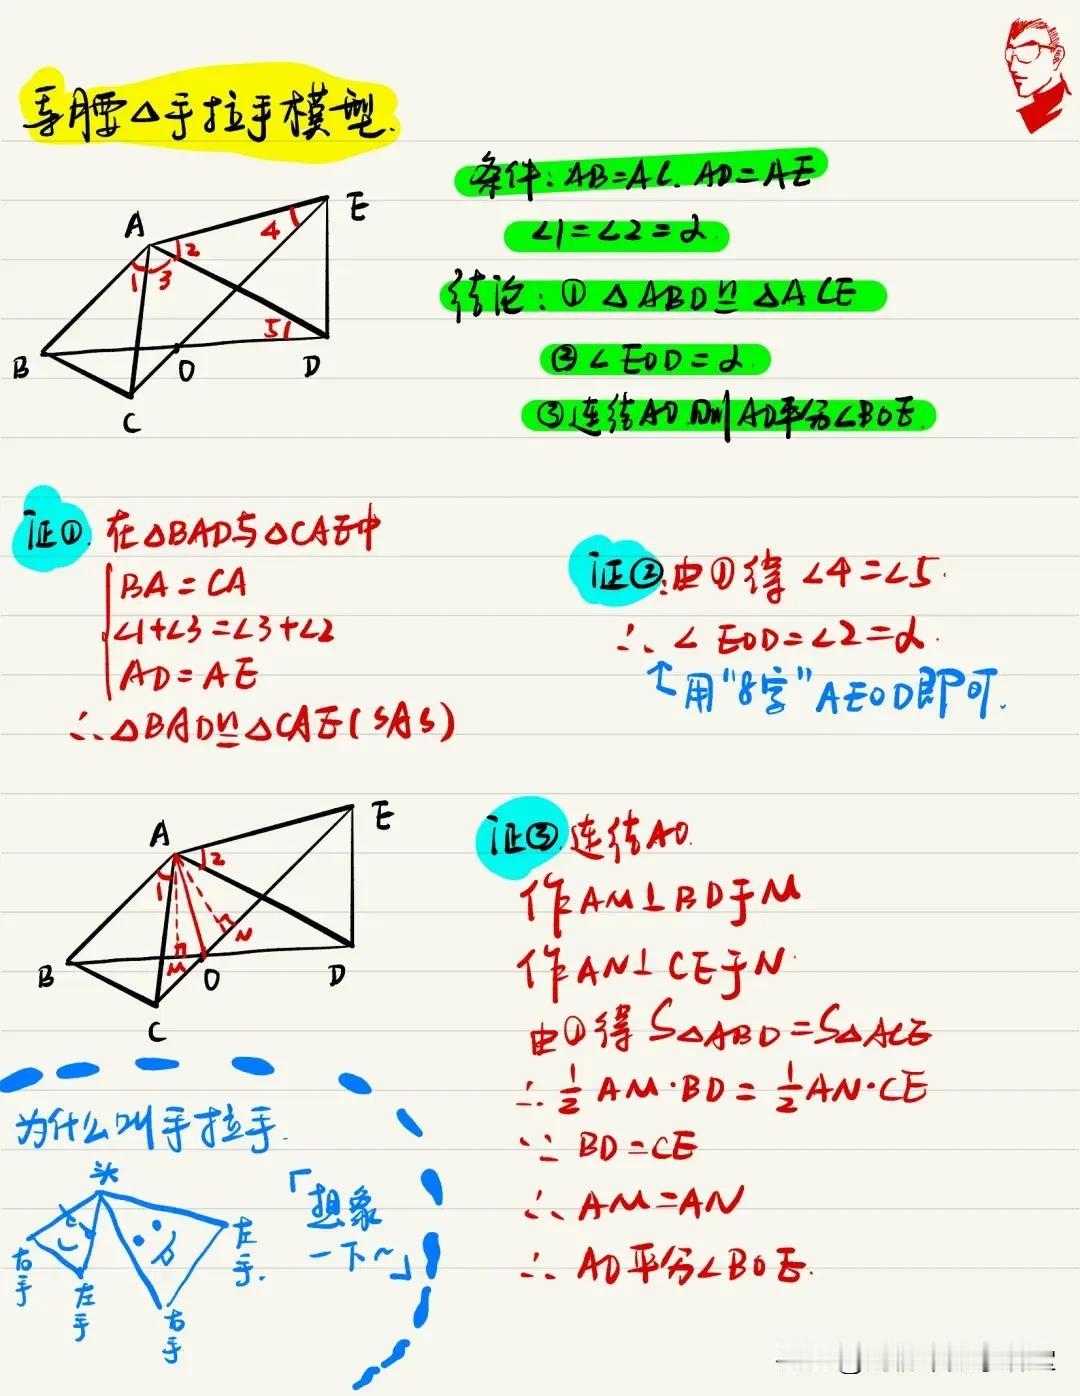 等腰△手拉手模型.
条件: AB=AC. AD=AE
∠1=∠2=α
结论: ① △ABD≌△ACE
② ∠EOD=α
③连结AO则AO平分∠BOE
A
E
4
2
1
3
5
B
O
D
C
证①. 在△BAD与△CAE中
BA=CA
∠1+∠3=∠3+∠2
AD=AE
∴△BAD≌△CAE(SAS)
证②:由①得∠4=∠5.
∴∠EOD=∠2=α.
↑用"8字"AEOD即可.
A
E
2
1
N
M
B
O
D
C
证③.连结AO.
作AM⊥BD于M
作AN⊥CE于N.
由①得 S△ABD=S△ACE
∴½AM·BD=½AN·CE
∵BD=CE
∴AM=AN
∴AO平分∠BOE.
为什么叫手拉手.
头
「想象
一下~」
右手
左手
右手
左手.